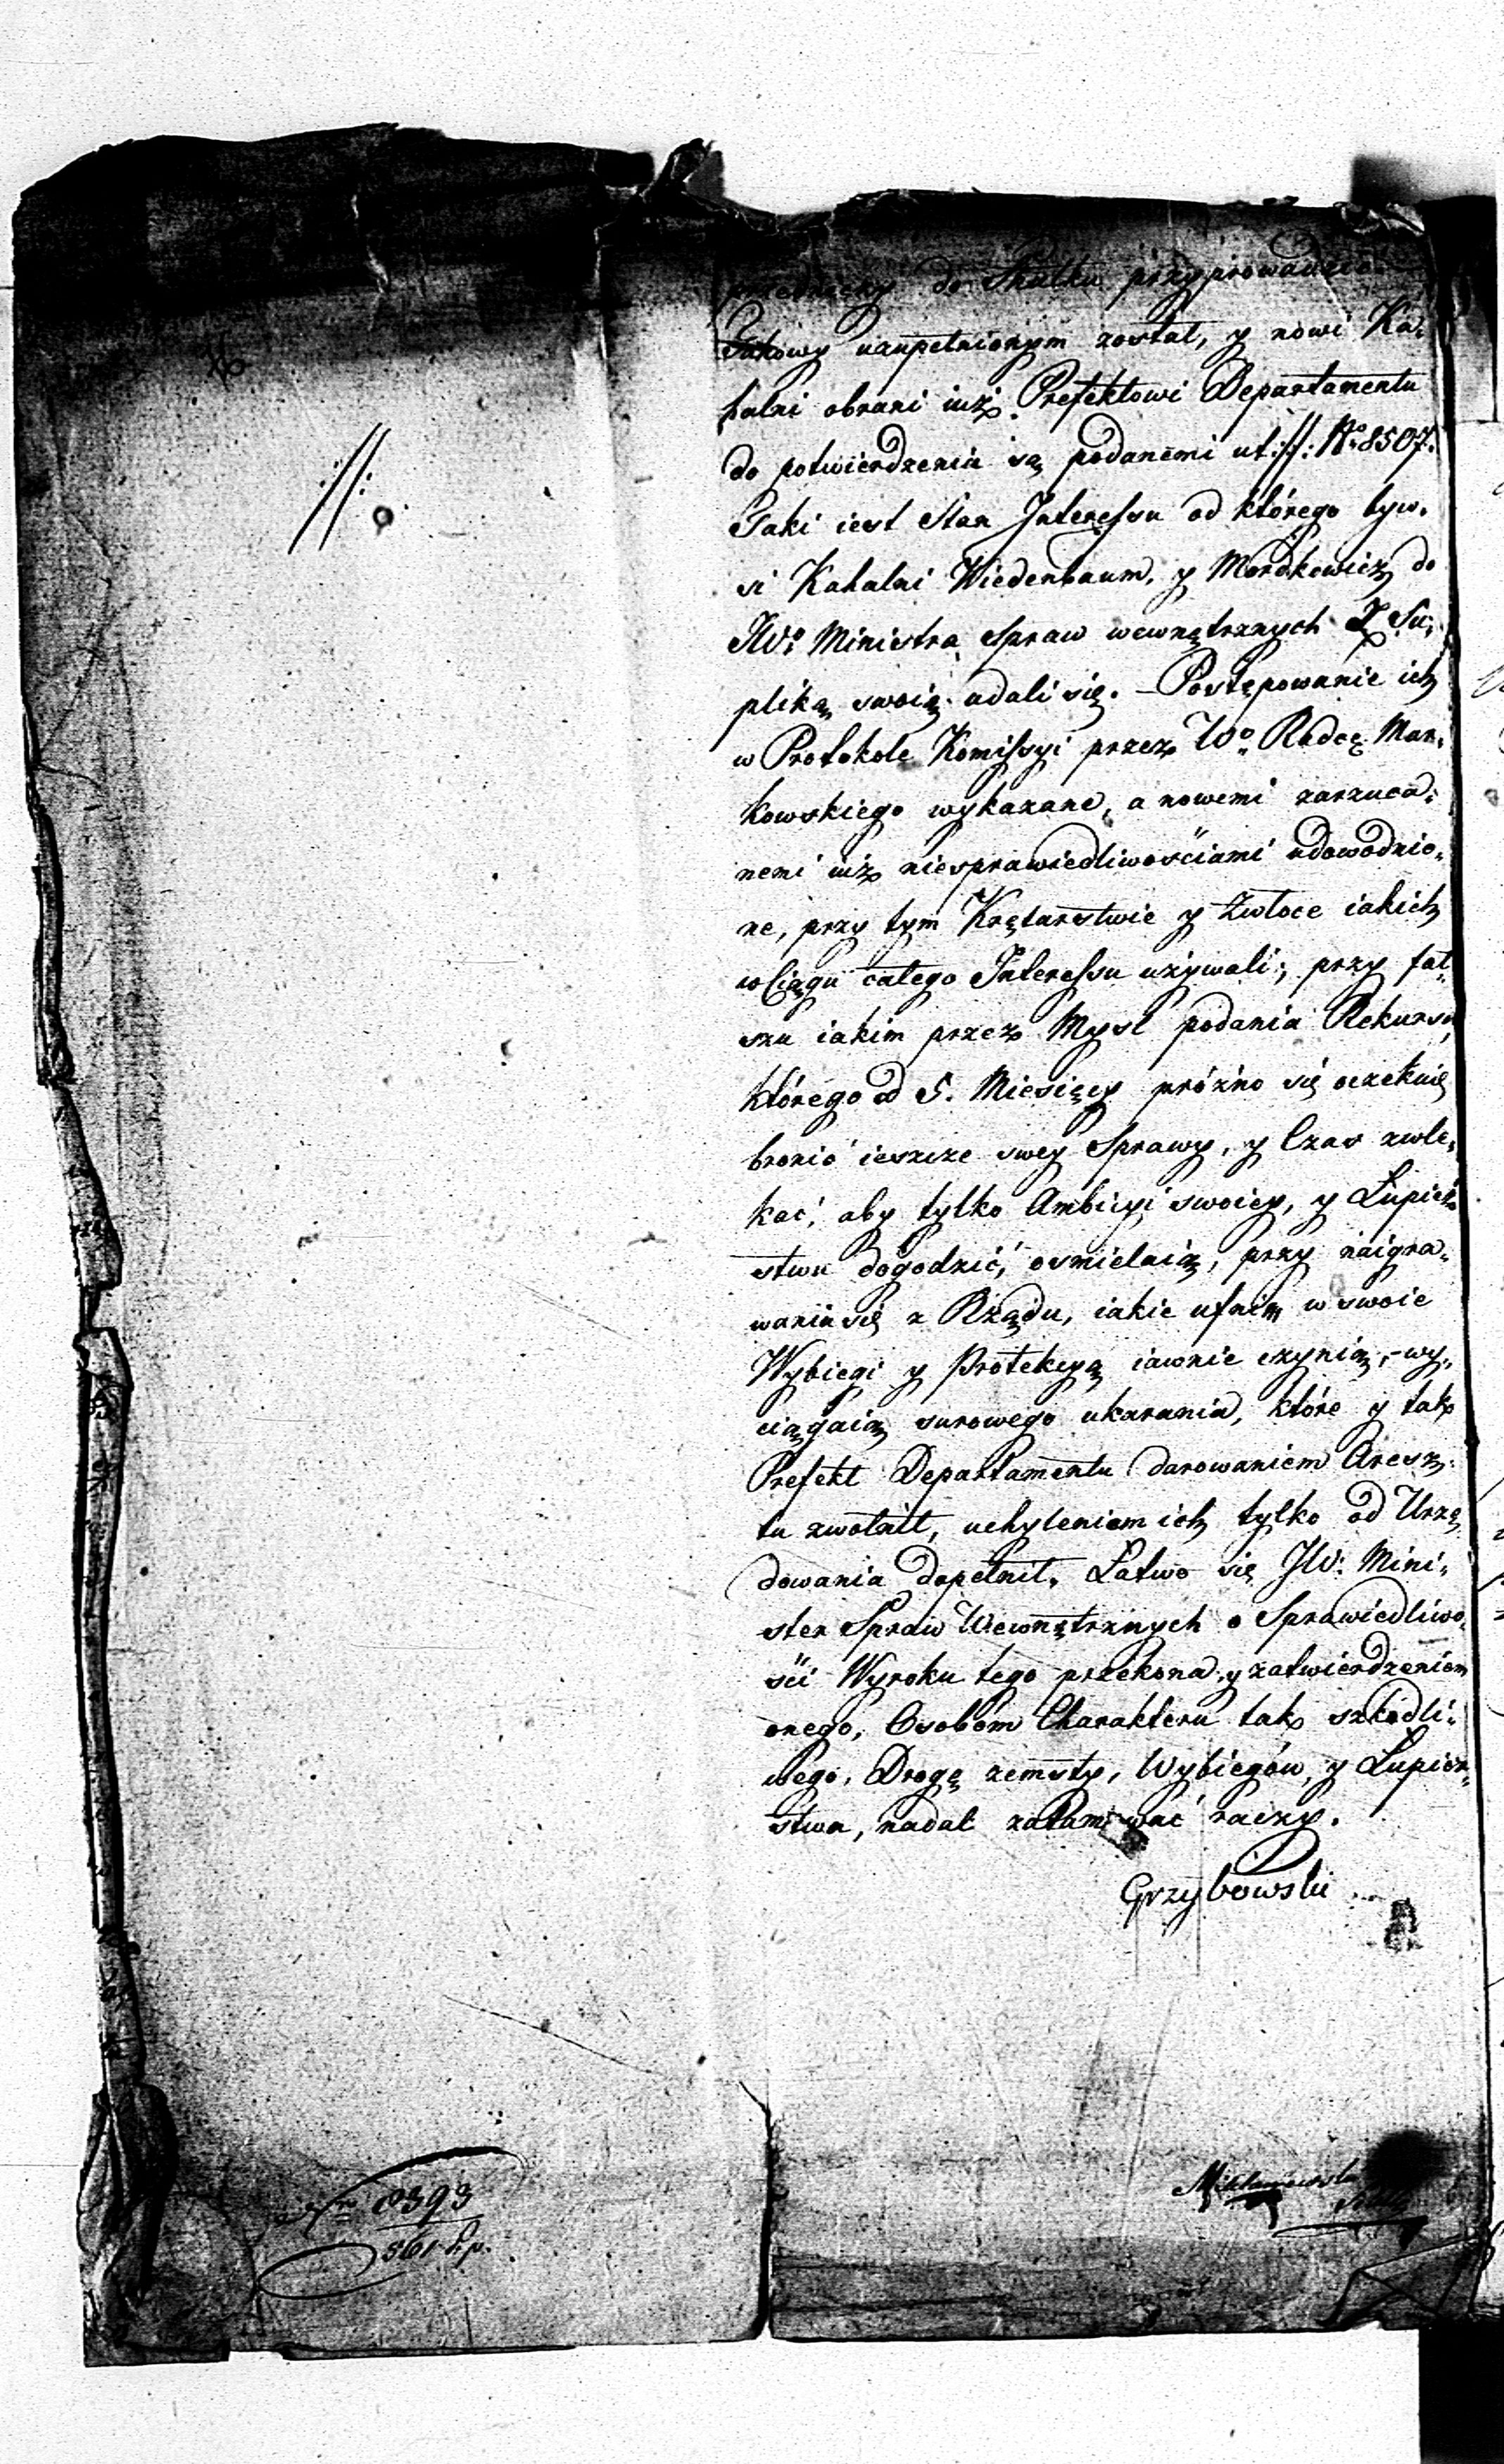 do Skutku przyprowadzić
Takowy uzupełnionym został, y nowi Ka:
halni obrani iuż Prefektowi Departamentu
do potwierdzenia są podanemi ut ://: No 8507.
Taki iest Stan Interessu od którego byw:
si Kahalni Wiedenbaum, y Mordkowicz do
JWo Ministra Spraw wewnętrznych Z Su:
pliką swoią udali się. – Postępowanie ich
w Protokole Komissyi przez Wo Radcę Mar:
kowskiego wykazane, a nowemi zarzuca:
nemi iuż niesprawiedliwościami udowodnio:
ne, przy tym Krętarstwie y Zwłoce iakich
w Ciągu całego Interessu używali; przy fał:
szu iakim przez Mysl podania Rekursu
którego od 5. Miesięcy próżno się oczekuię
bronić ieszcze swey Sprawy, y Czas zwle:
kać, aby tylko Ambicyi swoiey, y Łupież
stwu dogodzić, osmielaią, przy naigra:
wania się z Rządu, iakie ufaiąc w swoie
Wybiegi y Protekcyą iawnie czynią, – wy:
ciągaią surowego ukarania, które y tak
Prefekt Departamentu darowaniem Aresz:
tu zwolnił, uchyleniem ich tylko od Urzę
dowania dopełnił. Łatwo się JW: Mini:
ster Spraw Wewnętrznych o Sprawiedliwo:
ści Wyroku tego przekona, y zatwierdzeniem
onego, Osobom Charakteru tak szkodli:
wego, Drogę zemsty, Wybiegów, y Łupież:
stwa, nadal zatamować raczy.
Grzybowski
://:
8393
561